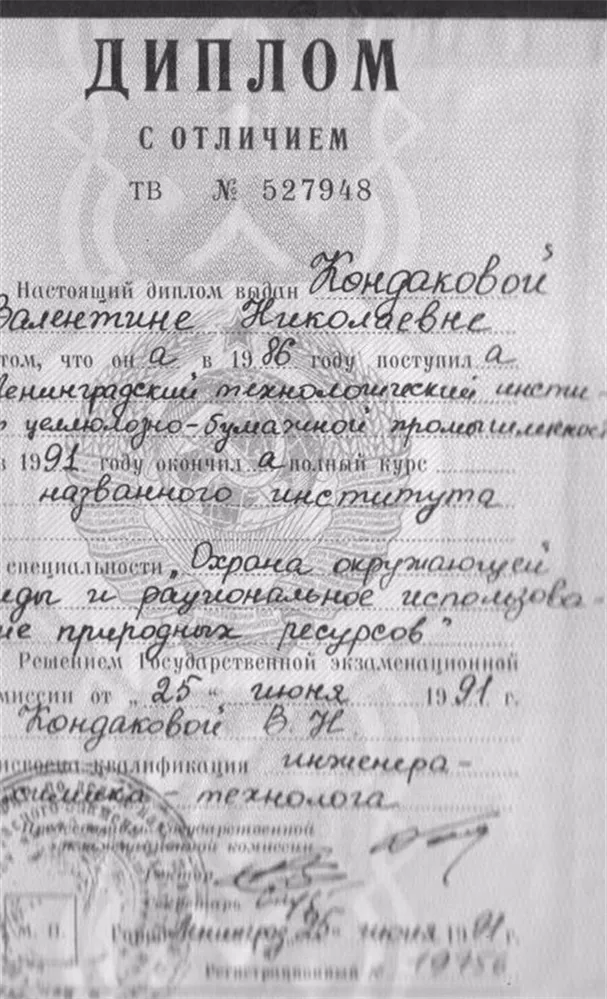 ДИПЛОМ
С ОТЛИЧИЕМ
ТВ № 527948
Настоящий диплом выдан Кондаковой
Валентине Николаевне
том, что он а в 1986 году поступил а
Ленинградский технологический инсти-
т целлюлозно-бумажной промышленнос
в 1991 году окончил а полный курс
названного института
специальности „Охрана окружающей
еды и рациональное использова-
ие природных ресурсов"
Решением Государственной экзаменационной
миссии от „25" июня 1991 г.
Кондаковой В. Н.
исвоена квалификация инженера-
химика-технолога
Председатель Государственной
экзаменационной комиссии
Ректор
Секретарь
М. П. Город Ленинград „25" июня 1991 г.
Регистрационный №